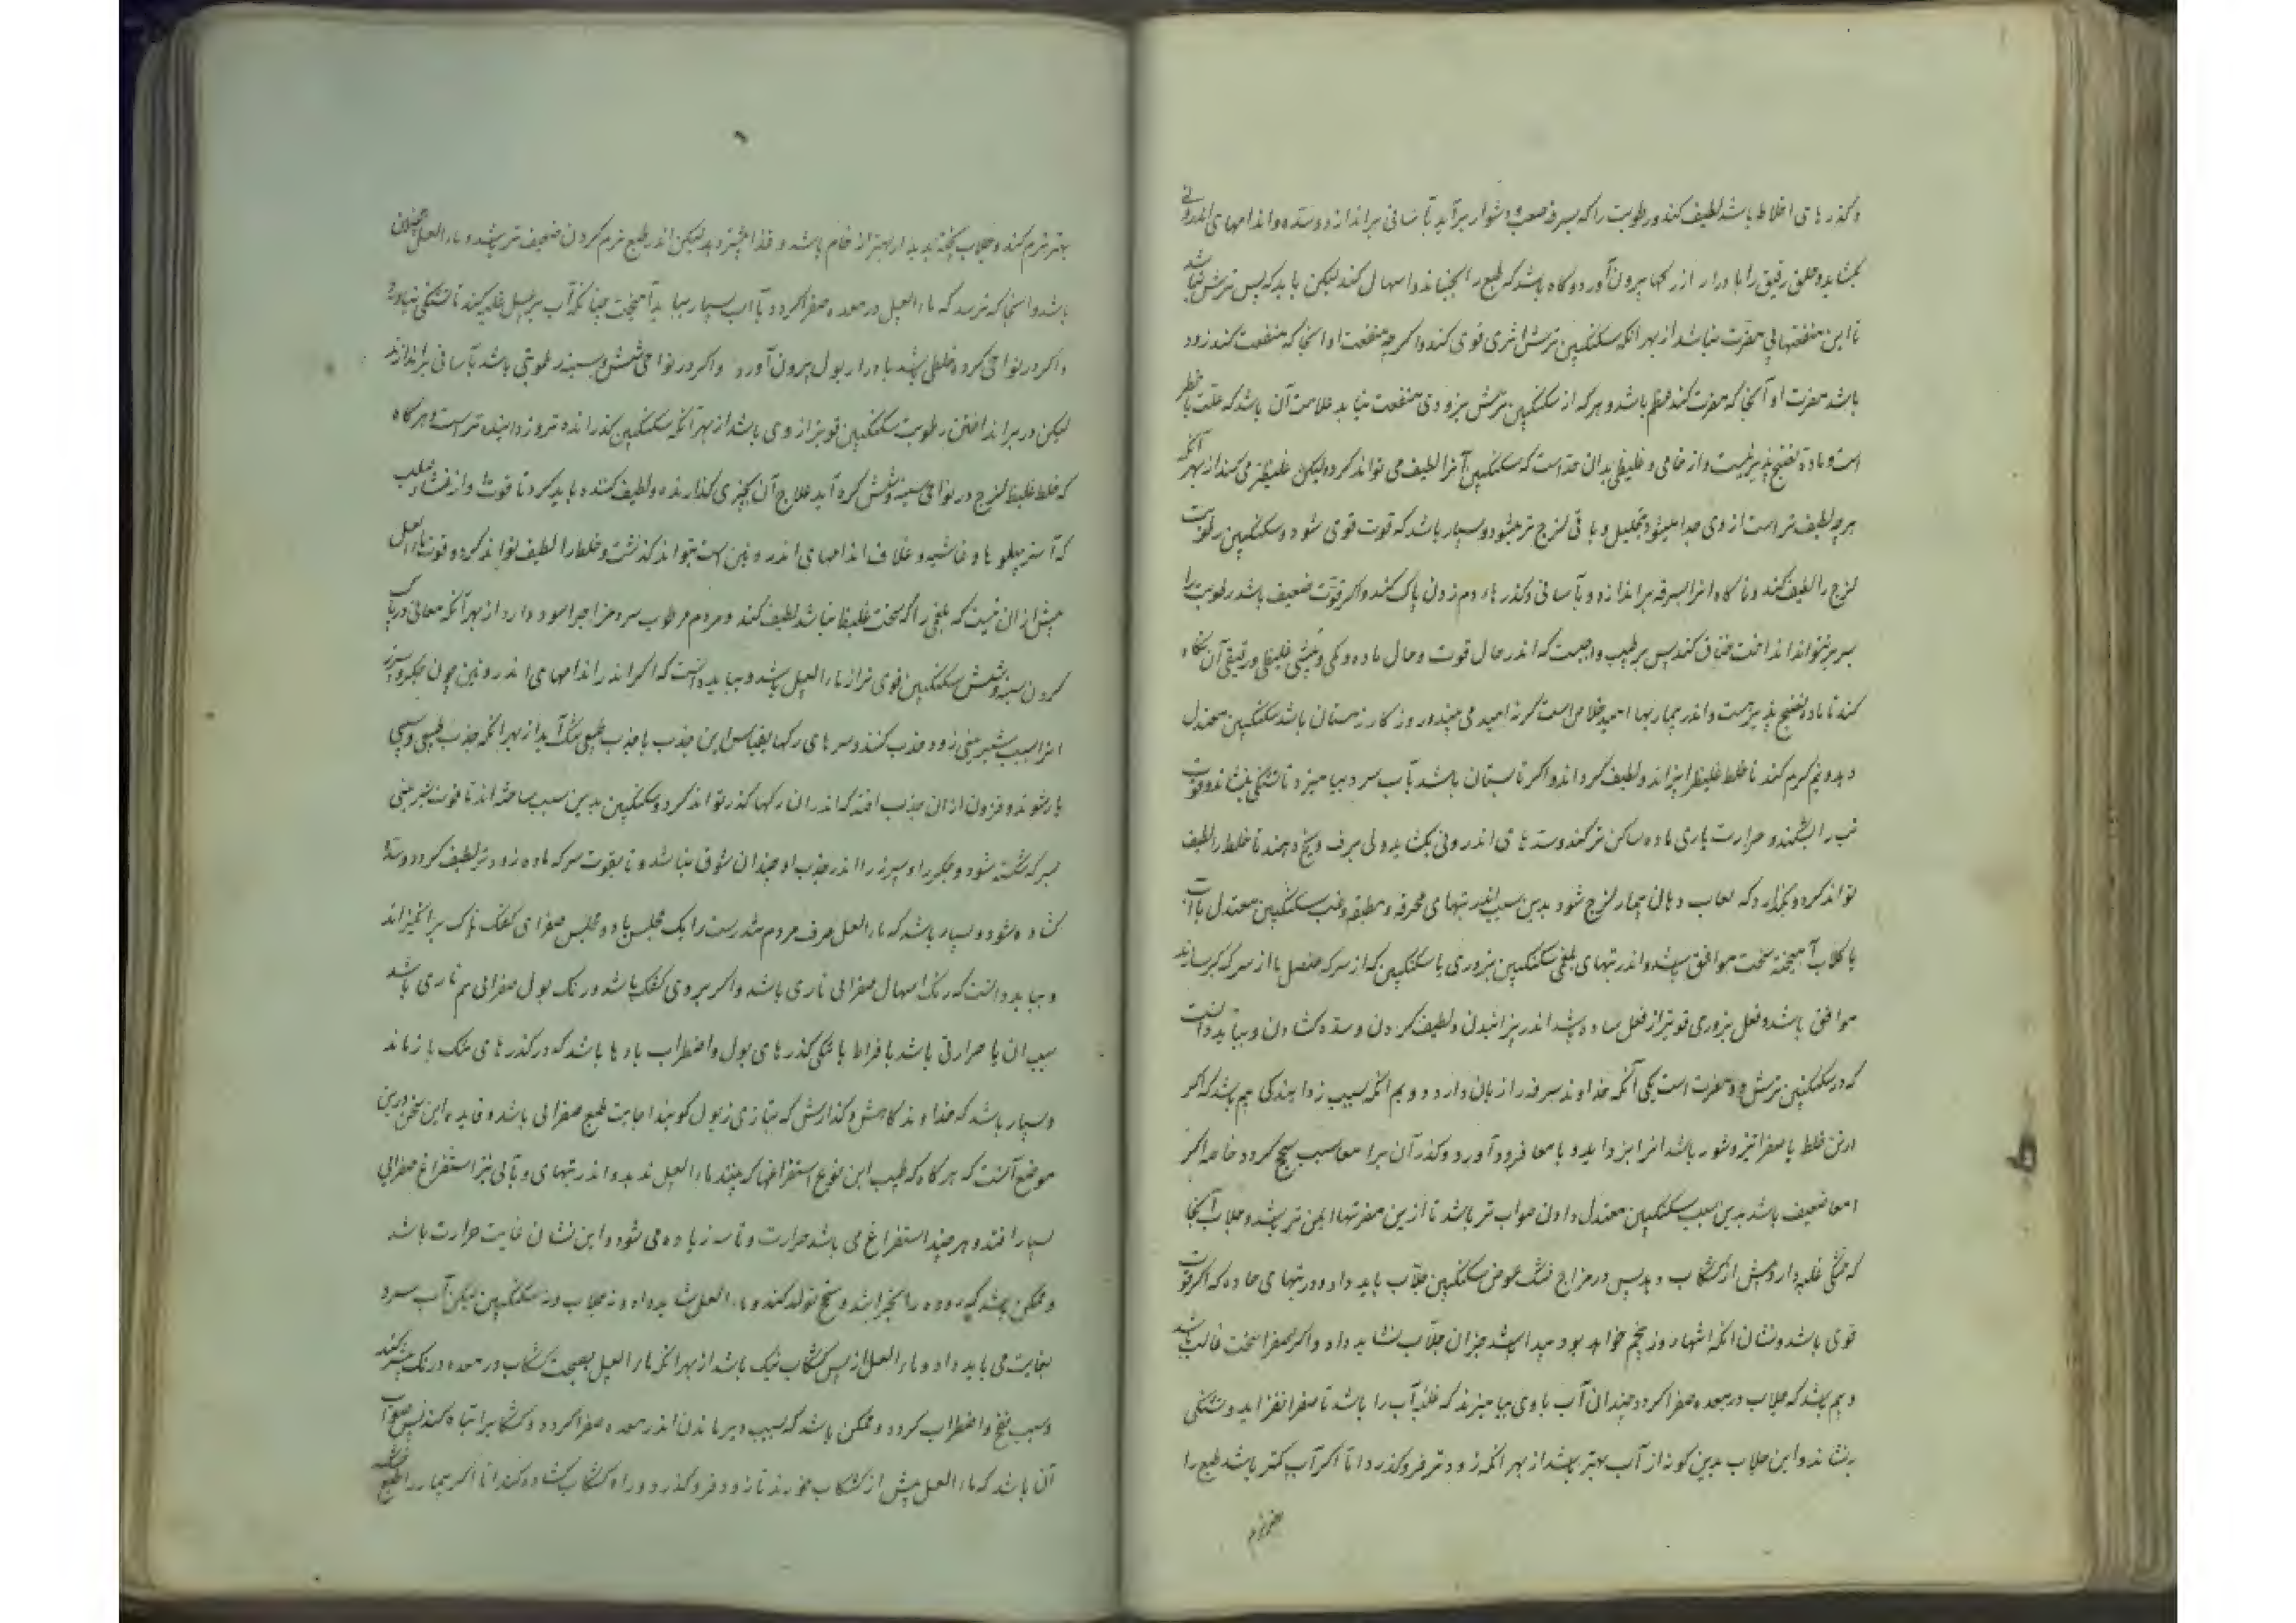 و گذرهای اخلاط باشد لطیف کند و رطوبت را که بسرفه صعب و دشوار برآید بآسانی براندازد و سده و اندامهای اندرونی
بگشاید و خلق رقیق را بادرار از رکها بیرون آورد و گاه باشد که طبع را بجنباند و اسهال کند لیکن باید که بس ترش نباشد
تا این منفعتها بی مضرت نباشد از بهر آنکه سکنکبین ترش اثری قوی کند و اگر چه منفعت او آنجا که منفعت کند زود
باشد مضرت او آنجا که مضرت کند عظیم باشد و هر که از سکنکبین ترش بزودی منفعت نیابد علامت آن باشد که علت با خطر
است و ماده نضج پذیر نیست و از خامی و غلیظی بدان حد است که سکنکبین آنرا لطیف می تواند کرد و لیکن غلیظتر می کند از بهر آنکه
هر چه لطیف تر است از وی جدا میشود بتحلیل و باقی لزج تر میشود و بسیار باشد که قوت قوی شود و سکنکبین رطوبت
لزج را لطیف کند و ناگاه انرا بسرفه براندازد و بآسانی و گذرهاء دم زدن پاک کند و اگر قوت ضعیف باشد رطوبت را
بسرفه نتواند انداخت خناق کند پس بر طبیب واجبست که اندر حال قوت و حال ماده و کمی و بیشی غلیظی و رقیقی آن نگاه
کند تا ماده نضج پذیرست و اندر بیماریها امید خلاص است گرنه امید می بیند و روزگار زمستان باشد سکنکبین معتدل
دهد و نیم گرم کند تا خلط غلیظ را بپزاند و لطیف گرداند و اگر تابستان باشد بآب سرد بیامیزد تا تشنگی بنشاند و قوت
تب را بشکند و حرارت یاری ماده ساکن تر کند و سدهای اندرونی بگشاید ولی برف و یخ دهند تا خلط را لطیف
تواند کرد و نگذارد که لعاب دهان بیمار لزج شود بدین سبب اندر تبهای محرقه و مطبقه و غب سکنکبین معتدل با آب
یا گلاب آمیخته سخت موافق باشد و اندر تبهای بلغمی سکنکبین بزوری یا سکنکبین که از سرکه عنصل یا از سرکه کبر سازند
موافق باشد و فعل بزوری قوی تر از فعل ساده باشد اندر پزانیدن و لطیف کردن و سده گشادن و بباید دانست
که در سکنکبین ترش دو مضرت است یکی آنکه خداوند سرفه را زیان دارد و دویم آنکه بسبب زدایندگی بیم باشد که اگر
ازین خلط یا صفرا تیز و شور باشد انرا بزداید و بامعا فرود آورد و گذر آن برا معا سبب سحج گردد خاصه اگر
امعا ضعیف باشد بدین سبب سکنکبین معتدل دادن صواب تر باشد تا ازین مضرتها ایمن تر باشد و جلاب آنجا
که خشکی غلبه دارد پیش از کشکاب دهد پس در مزاج خشک عوض سکنکبین جلاب باید داد و در تبهای حاده که اگر قوت
قوی باشد و نشان انکه انتها روز پنجم خواهد بود پیدا باشد جزان جلاب نشاید داد و اگر صفرا سخت غالب باشد
و بیم باشد که جلاب در معده صفرا گردد چندان آب با وی بیامیزند که غلبه آب را باشد تا صفرا نفزاید و تشنگی
بنشاند و این جلاب بدین گونه از آب بهتر باشد از بهر انکه زودتر فرو گذرد اما اگر آب کمتر باشد طبع را
بهتر نرم کند و جلاب پخته بدین کار بهتر از خام باشد و غذا بیشتر دهد لیکن اندر طبع نرم کردن ضعیف تر باشد و ماء العسل همچنین
باشد و انجا که ترسد که ماء العسل در معده صفرا گردد با آب بسیار بباید آمیخت چنانکه آب بر عسل غلبه کند تا تشنگی نیاورد
و اگر در نواحی گرده خلطی باشد بادرار بول بیرون آورد و اگر در نواحی شش و سینه رطوبتی باشد بآسانی براندازند
لیکن در برانداختن رطوبت سکنکبین قوی تر از وی باشد از بهر آنکه سکنکبین گدازنده تر و زداینده تر است و هرگاه
که خلط غلیظ لزج در نواحی سینه و شش گرد آید علاج آن بچیزی گدازنده و لطیف کننده باید کرد تا قوت او از غشاء صلب
که آستر پهلوها و غاشیه و غلاف اندامهای اندرونین است بتواند گذشت و خلط را لطیف تواند کرد و قوت ماء العسل
بیش از ان نیست که بلغمی را که سخت غلیظ نباشد لطیف کند و مردم مرطوب سرد مزاج را سود دارد از بهر آنکه معانی در پاک
کردن سینه و شش سکنکبین قوی تر از ماء العسل باشد و بباید دانست که اگر اندر اندامهای اندرونین چون جگر و سپرز
انرا بسبب شیرینی زود جذب کنند و سرهای رکها بقیاس این جذب با جذب طبیعی تنگ آید از بهر انکه جذب طبیعی و سببی
یار شوند و فزون از ان جذب افتد که اندر ان رکها گذر تواند کرد و سکنکبین بدین سبب ساخته اند تا قوت شیرینی
بسرکه شکسته شود و جگر را و سپرز را اندر جذب او چندان شوق نباشد و تا بقوت سرکه ماده زودتر لطیف گردد و سده
گشاده شود و بسیار باشد که ماء العسل صرف مردم تندرست را یک مجلس یا دو مجلس صفرای کفک ناک برانگیزاند
و بباید دانست که رنگ اسهال صفرائی ناری باشد و اگر بر وی کفک باشد و رنگ بول صفرائی هم ناری باشد
سبب ان یا حرارتی باشد بافراط یا تنگی گذرهای بول و اضطراب بادها باشد که در گذرهای تنگ باز ماند
و بسیار باشد که خداوند کاهش و گدازش که بتازی زبول گویند اجابت طبع صفرائی باشد و فایده این سخن درین
موضع آنست که هرگاه که طبیب این نوع استفراغها که بیند ماء العسل ندهد و اندر تبهای وبائی نیز استفراغ صفرائی
بسیار افتد و هر چند استفراغ می باشد حرارت و تاسه زیاده می شود و این نشان غایت حرارت باشد
و ممکن باشد که روده را بخراشد و سحج تولد کند و ماء العسل نشاید داد و نه جلاب و نه سکنکبین لیکن آب سرد
بغایت می باید داد و ماء العسل از پس کشکاب نیک باشد از بهر انکه ماء العسل بصحبت کشکاب در معده درنگ بیشتر کند
و سبب نفخ و اضطراب گردد و ممکن باشد که بسبب دیر ماندن اندر معده صفرا گردد و کشکاب را تباه کند پس صواب
آن باشد که ماء العسل پیش از کشکاب خورند تا زود فرو گذرد و راه کشکاب گشاده کند اما اگر بیمار را طبع